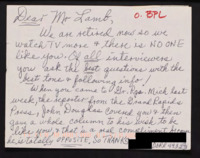 Dear Mr Lamb,
O. BPL
We are retired now so we
watch TV more & there is NO ONE
like you. Of all interviewers
you ask the best questions with the
best tone & following info!
When you came to Gr. Rap. Mich last
week, the reporter from the Grand Rapids
Press, John Douglas covered you & then
gave a whole column to his wish to be
like you, & that is a real compliment from
he is totally OPPOSITE. So THANKS